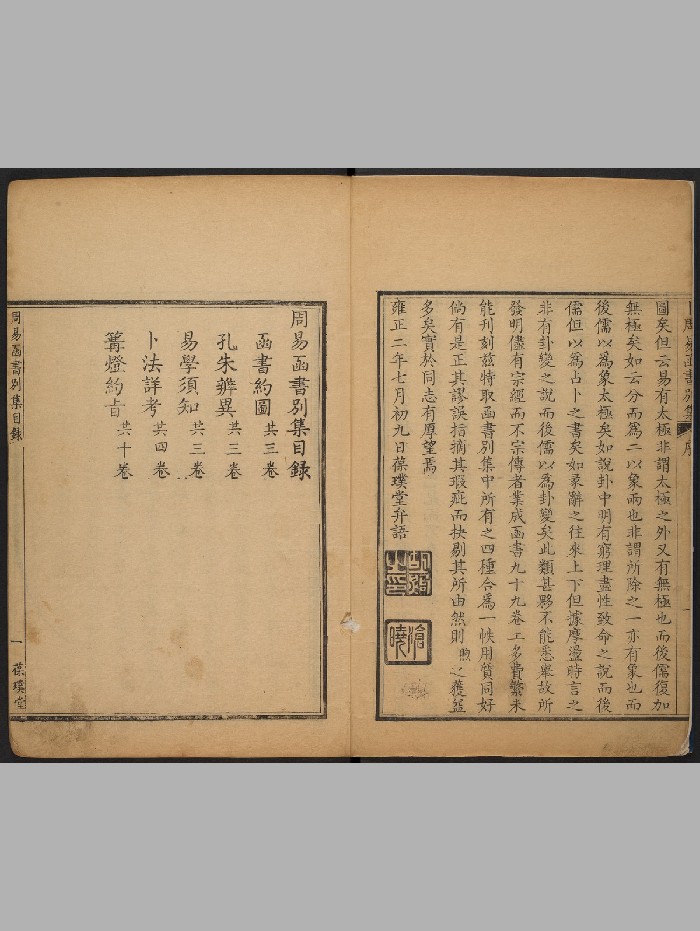 周易函書別集 序
圖矣但云易有太極非謂太極之外又有無極也而後儒復加
無極矣如云分而爲二以象兩也非謂所除之一亦有象也而
後儒以爲象太極矣如說卦中明有窮理盡性致命之說而後
儒但以爲占卜之書矣如彖辭之往來上下但據摩盪時言之
非有卦變之說而後儒以爲卦變矣此類甚夥不能悉舉故所
發明儘有宗經而不宗傳者業成函書九十九卷工多費繁未
能刋刻兹特取函書別集中所有之四種合爲一帙用質同好
倘有是正其謬誤指摘其瑕疵而抉剔其所由然則煦之獲益
多矣實於同志有厚望焉
雍正二年七月初九日葆璞堂弁語
胡煦之印
滄曉
周易函書別集目録
函書約圖 共三卷
孔朱辨異 共三卷
易學須知 共三卷
卜法詳考 共四卷
篝燈約旨 共十卷
周易函書別集目録 一 葆璞堂